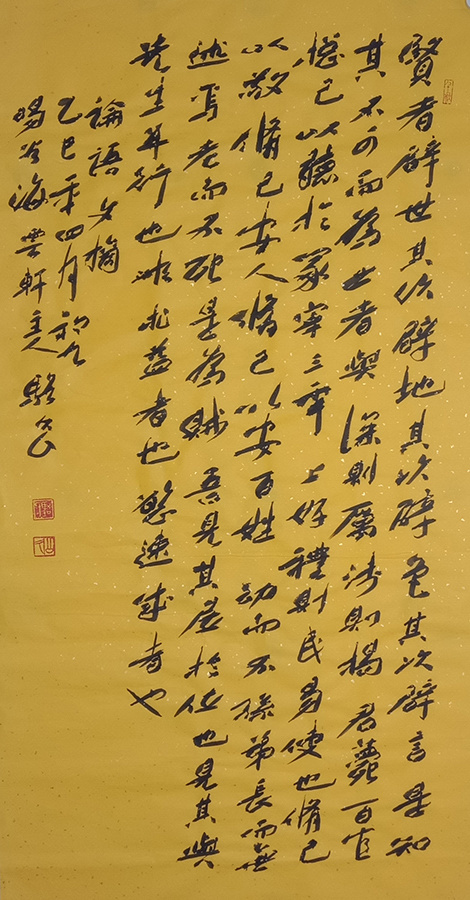 賢者辟世其次辟地其次辟色其次辟言是知
其不可而為之者與深則厲淺則揭君薨百官
總己以聽於冢宰三年上好禮則民易使也脩己
以敬脩己安人脩己以安百姓幼而不孫弟長而無
述焉老而不死是為賊吾見其居於位也見其與
先生并行也非求益者也欲速成者也
論語文摘
乙巳年四月初九
暘谷海雲軒主人駱